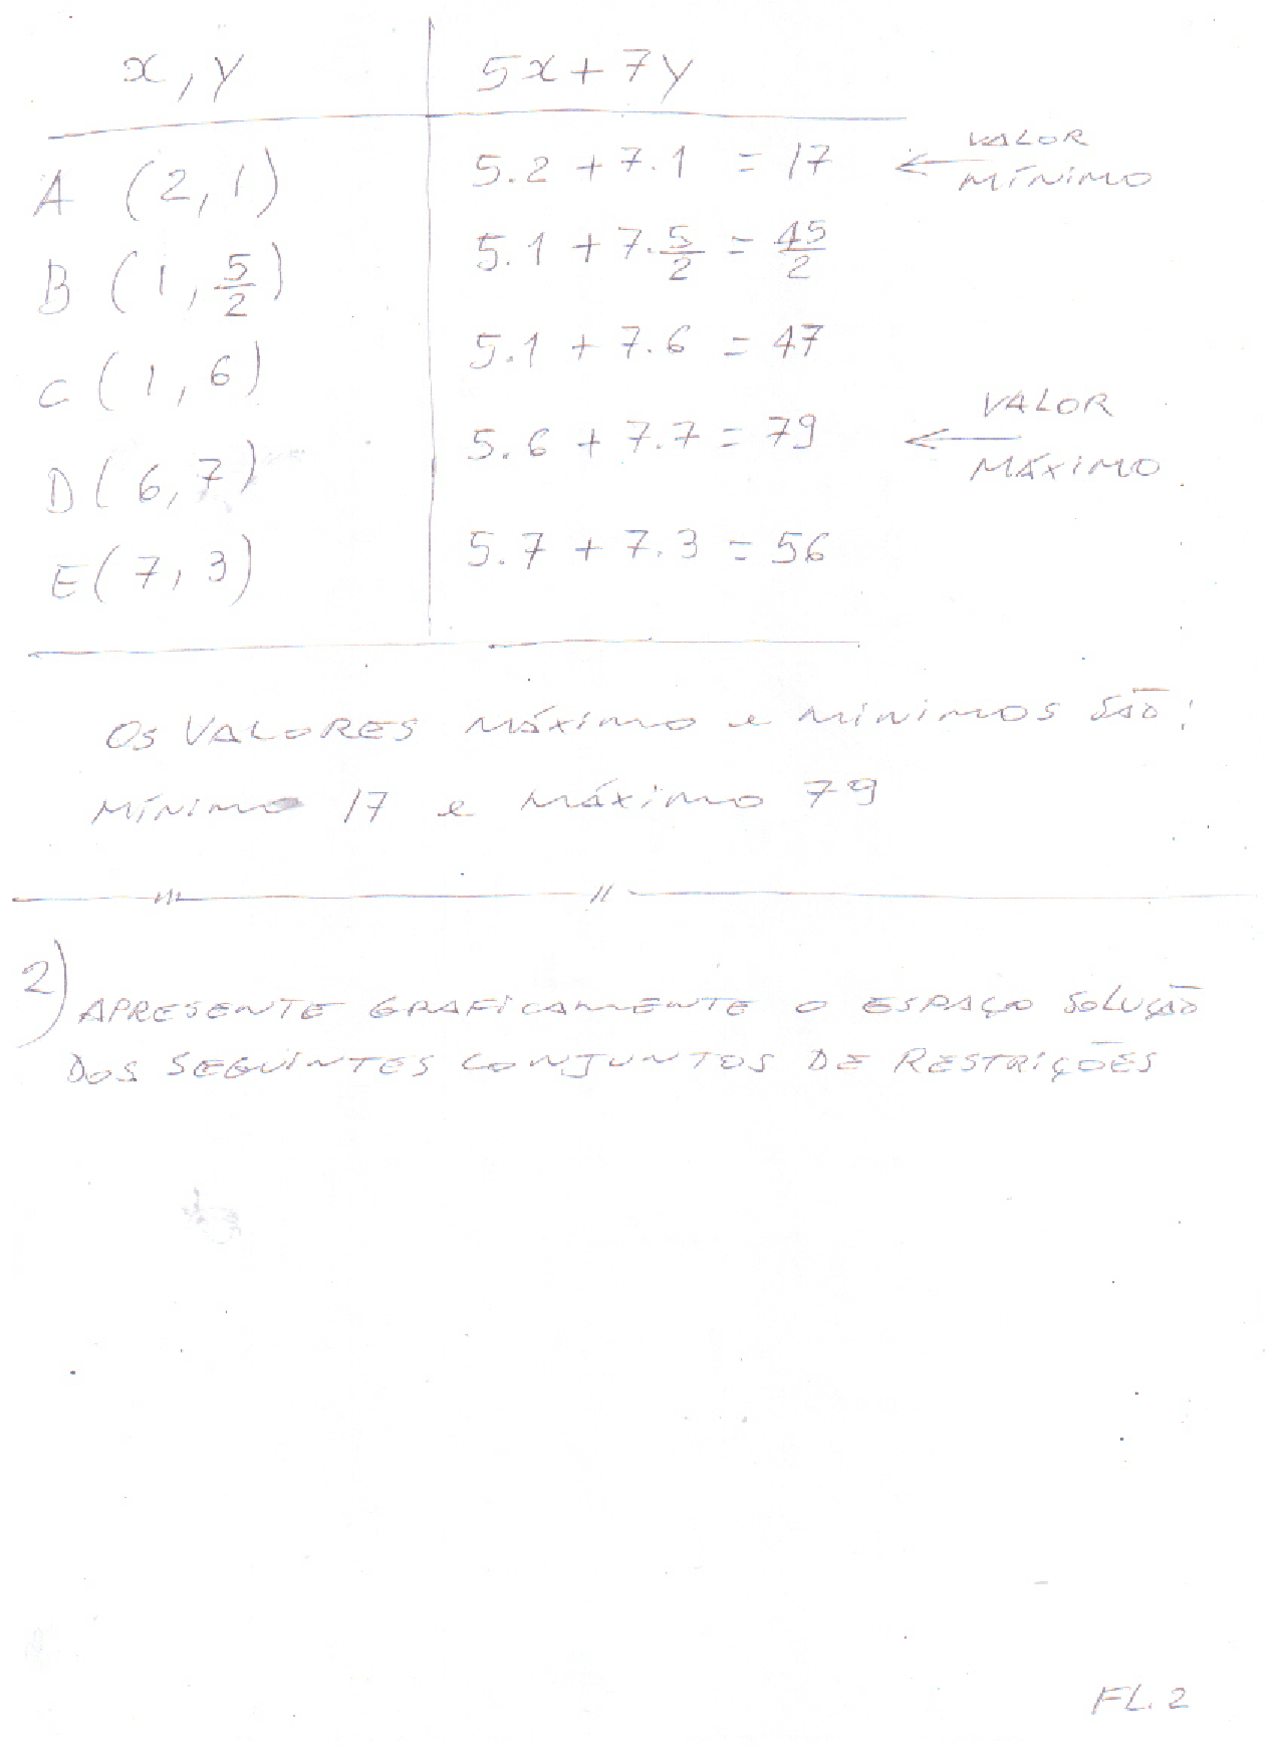 x, y 5x + 7y
A (2, 1) 5.2 + 7.1 = 17 ← VALOR MÍNIMO
B (1, 5/2) 5.1 + 7.5/2 = 45/2
C (1, 6) 5.1 + 7.6 = 47
D (6, 7) 5.6 + 7.7 = 79 ← VALOR MÁXIMO
E (7, 3) 5.7 + 7.3 = 56
OS VALORES MÁXIMO e MINIMOS SÃO:
MÍNIMO 17 e MÁXIMO 79
2) APRESENTE GRAFICAMENTE O ESPAÇO SOLUÇÃO
DOS SEGUINTES CONJUNTOS DE RESTRIÇÕES
FL. 2